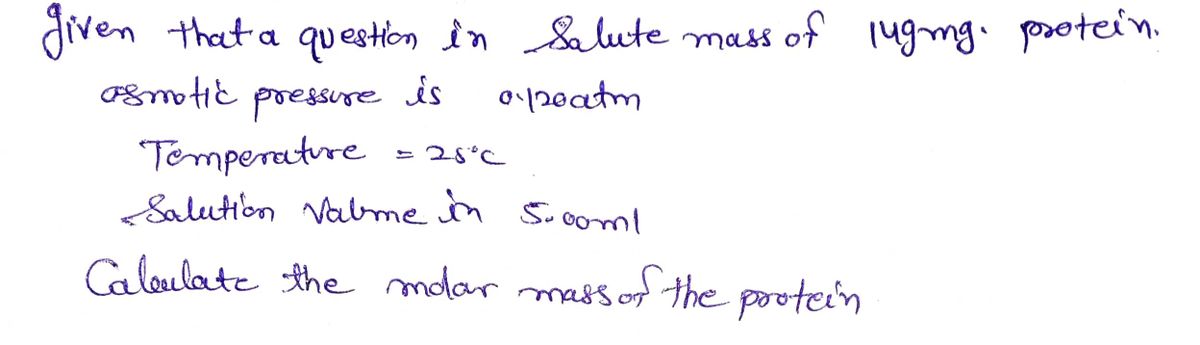 Given that a question in Salute mass of 149mg. protein.
osmotic pressure is 0.120atm
Temperature = 25°C
Salution Valume in 5.00ml
Calculate the molar mass of the protein